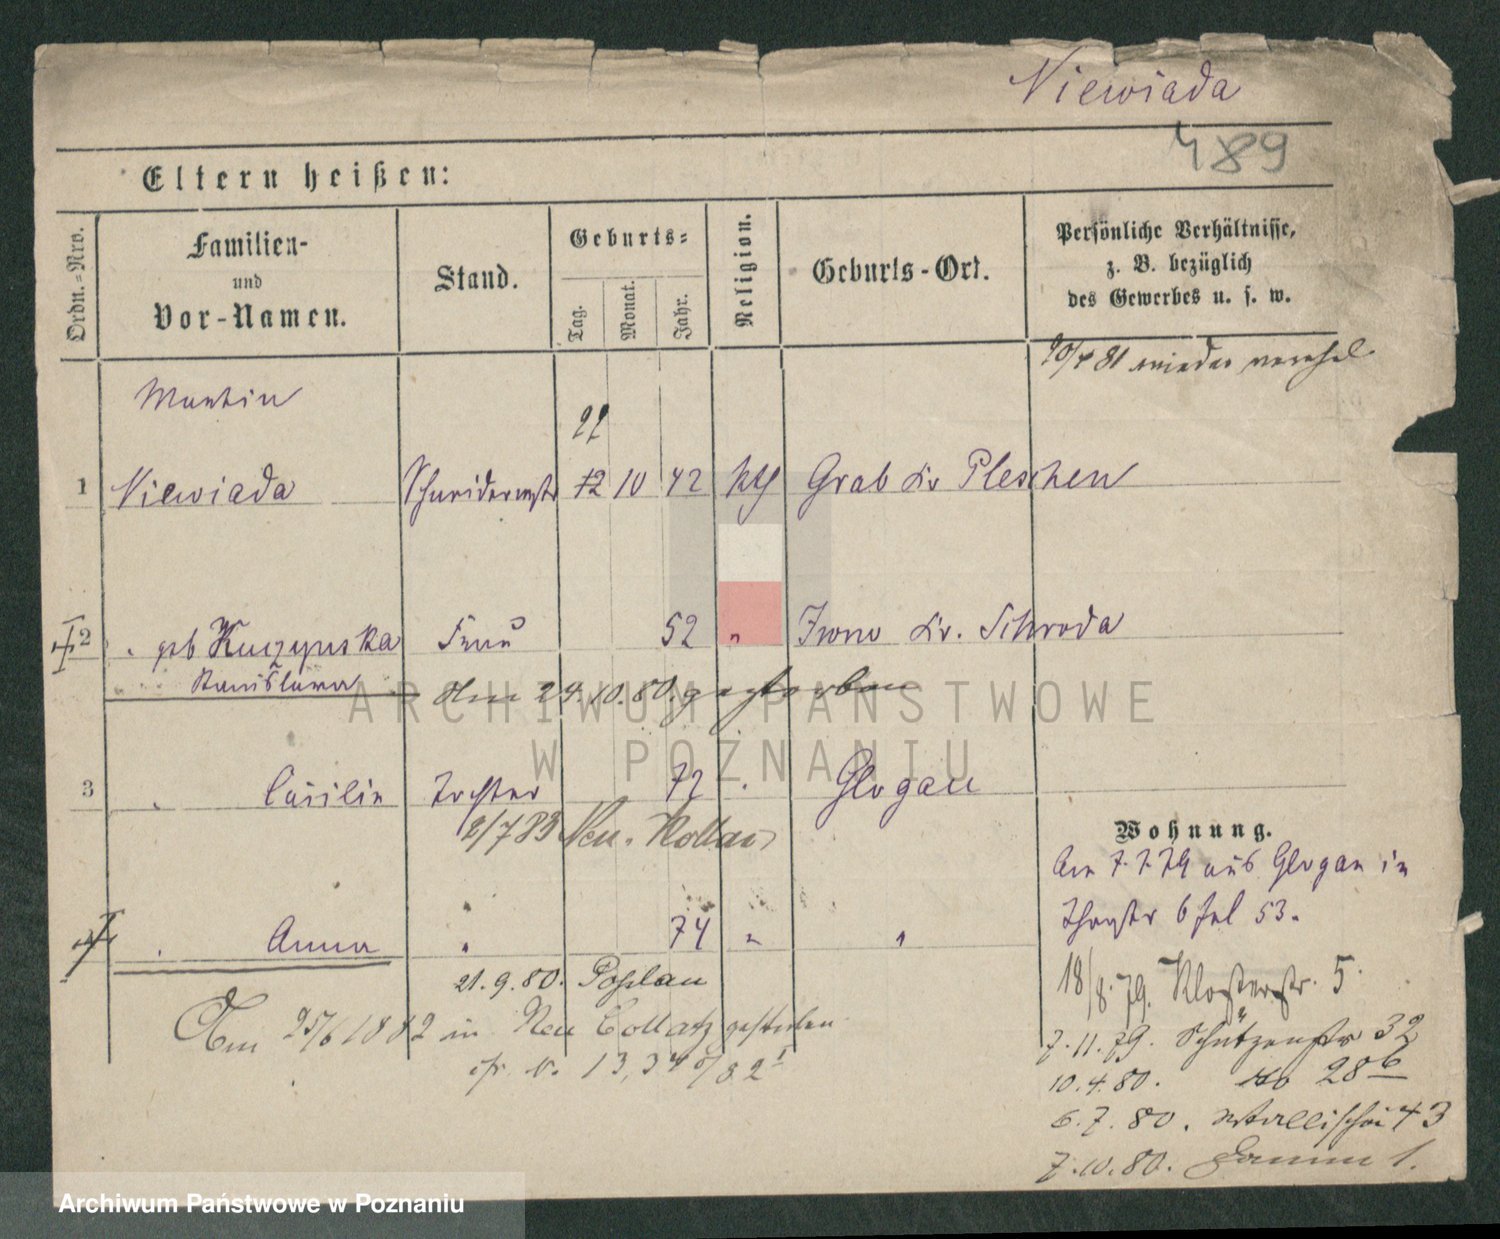 Niewiada
489
Eltern heißen:
Ordn.-Nro.
Familien-
und
Vor-Namen.
Stand.
Geburts-
Tag.
Monat.
Jahr.
Religion.
Geburts-Ort.
Persönliche Verhältnisse,
z. B. bezüglich
des Gewerbes u. s. w.
20/4 81 wieder verehel
Martin
22
1 Niewiada Schneidermstr 12 10 42 kth Grab Kr Pleschen
2 geb Kuczynska Frau 52 " Iwno Kr. Schroda
Stanislawa
Am 29.10.80. gestorben
3 Cäcilie Tochter 72 Glogau
2/7 83 Neu. Kollau
Wohnung.
Am 7.7.79 aus Glogau in
Thorstr 6 fol 53.
4 Anna " 74 " "
21.9.80. Posen
18/8.79. Klosterstr. 5.
Am 25/6 1882 in Neu Collatz gestorben
7.11.79. Schützenstr 32
13,34
10.4.80. do 28 b
6.7.80. Wallischei 43
7.10.80. Damm 1.
ARCHIWUM PAŃSTWOWE
W POZNANIU
Archiwum Państwowe w Poznaniu